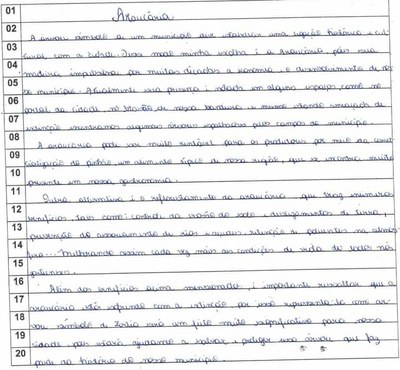 01
Araucária
02 A árvore símbolo de um município deve estabelecer uma ligação histórica e cul-
03 tural com a cidade. Dessa minha escolha é a Araucária, pois sua
04 madeira impulsionou por muitas décadas a economia e desenvolvimento de nos-
05 so município. Atualmente sua presença é notada em alguns espaços como no
06 portal da cidade, no brasão de nossa bandeira e mesmo estando ameaçada de
07 extinção encontramos algumas árvores espalhadas pelos campos do município.
08 A araucária pode ser muito rentável para os produtores por meio da comer-
09 cialização do pinhão, um alimento típico de nossa região, que se encontra muito
10 presente em nossa gastronomia.
11 Outra alternativa é o reflorestamento da araucária, que traz inúmeros
12 benefícios, tais como: controle da erosão do solo, de terra,
13 prevenção do assoreamento de rios e retenção de poluentes na atmos-
14 fera... Melhorando assim cada vez mais as condições de vida de todos nós
15
16 Além dos benefícios acima mencionados, é importante ressaltar que a
17 araucária está sofrendo com a extinção por isso representá-la com ár-
18 vore símbolo de seria um feito muito significativo para nossa
19 cidade pois estará ajudando a salvar e proteger uma árvore que faz
20 parte da história do nosso município.